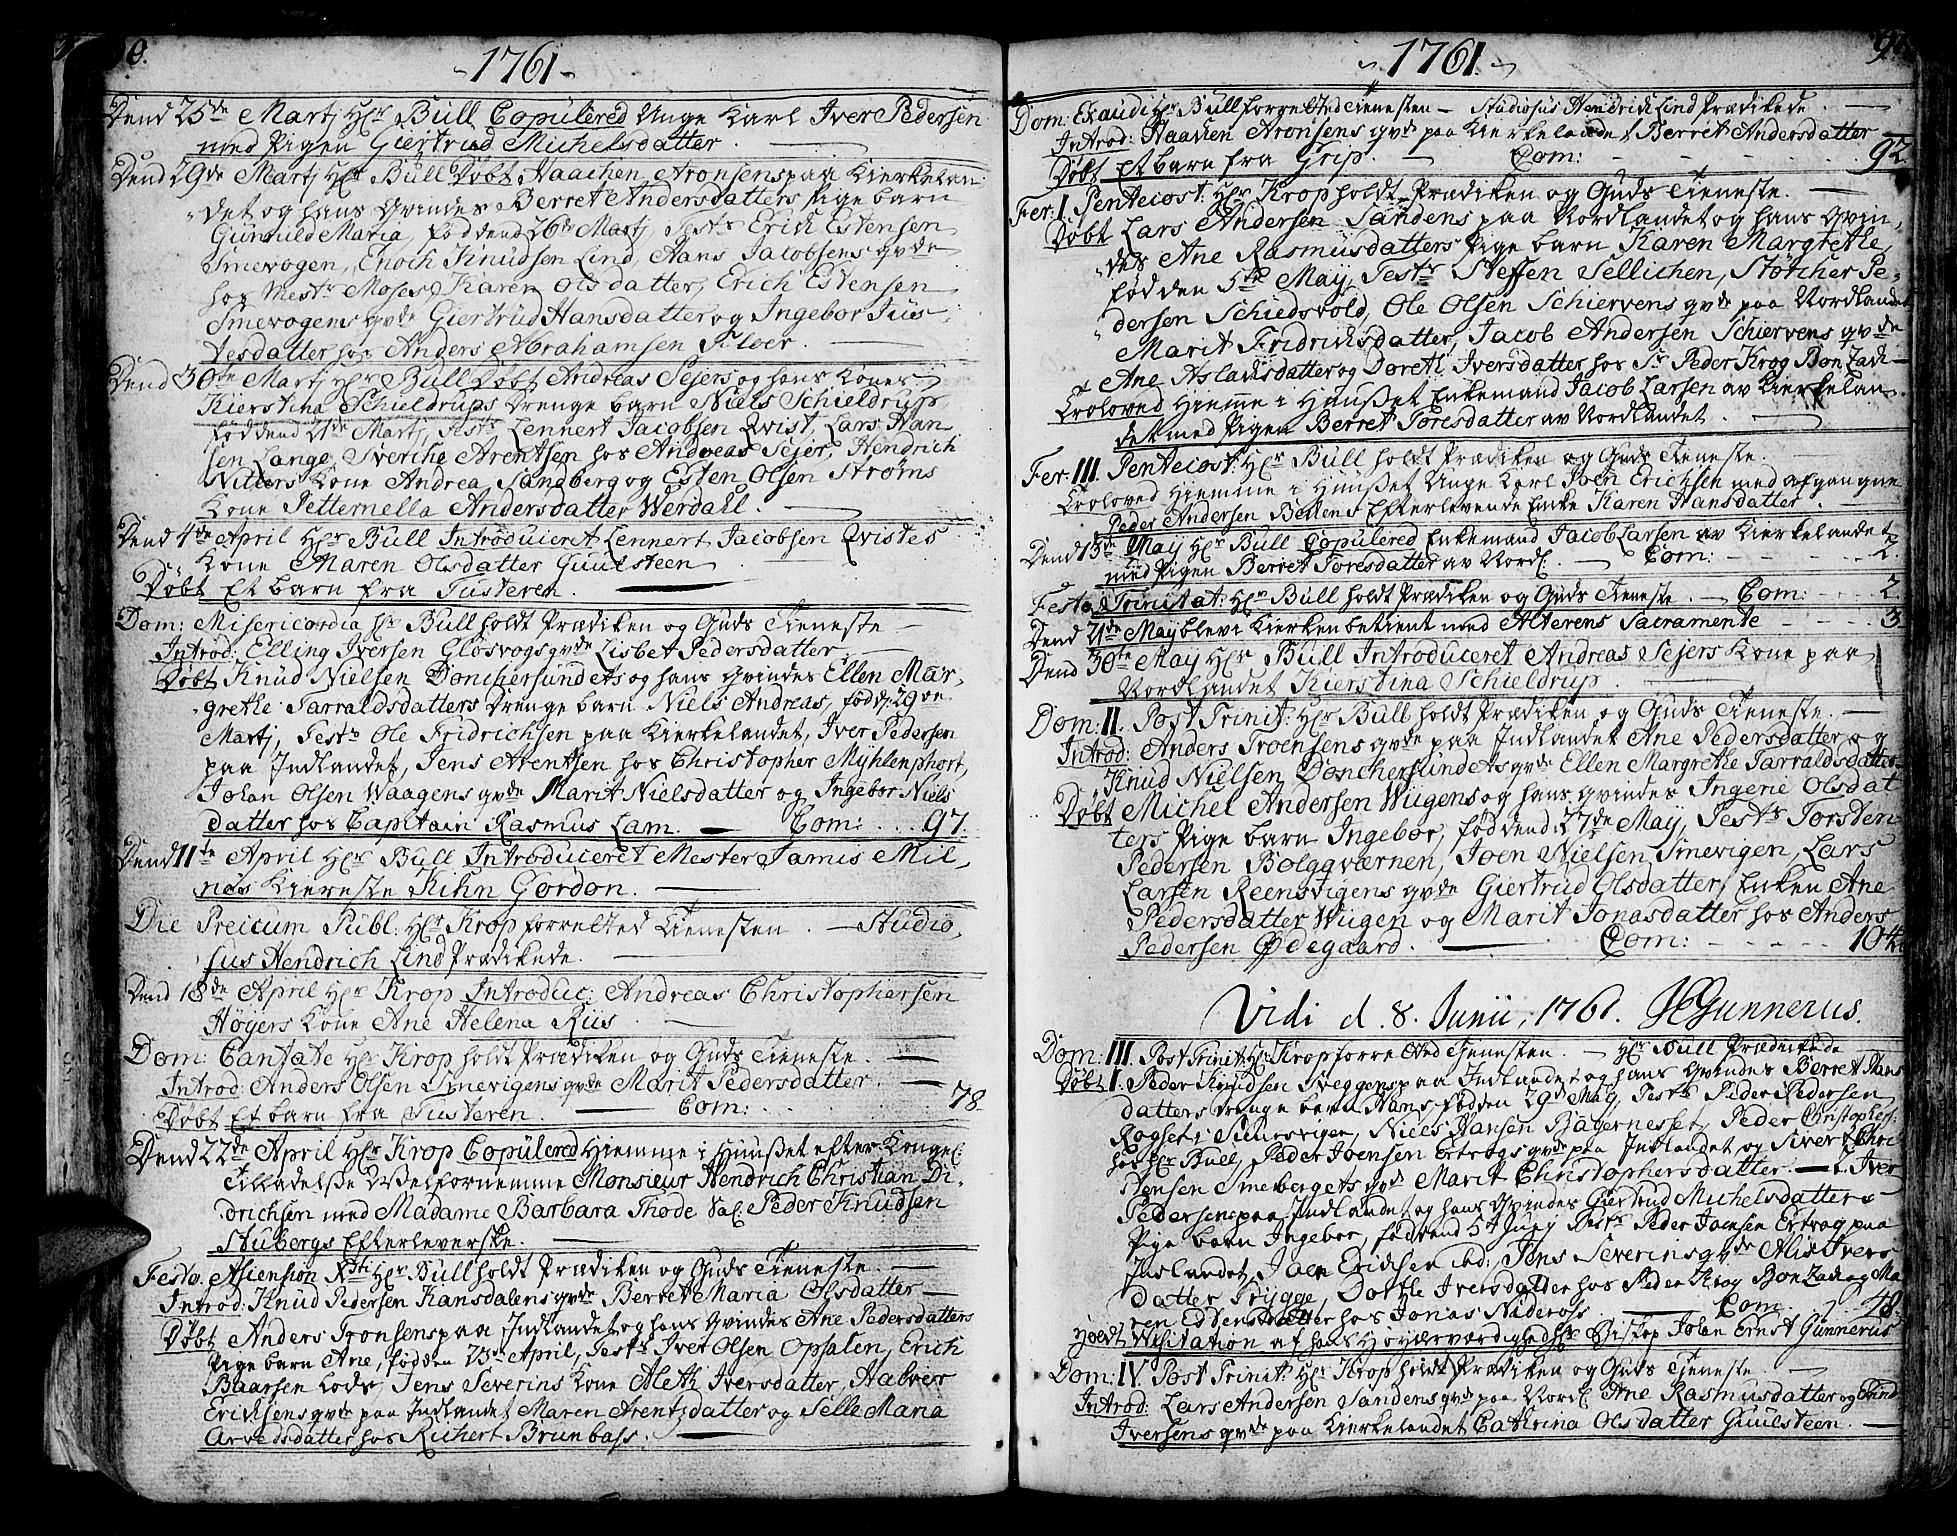 0.
-1761-
Dend 25de Martj Hr Bull Copulered Unge Karl Iver Pedersen
med Pigen Giertrud Michelsdatter.
Dend 29de Martj Hr Bull Døbt Haachen Aronsens paa Kierkelan-
det og hans Qvindes Berret Andersdatters Pige barn
Gunnild Maria, fød dend 26de Martj, Testr Erich Estensen
Smevogen, Enoch Knudsen Lind, Hans Jacobsens qvde
hos Mestr Moses, Karen Olsdatter, Erich Estensen
Smevogens qvde Giertrud Hansdatter og Ingebor Jus-
tesdatter hos Anders Abrahamsen Floer.
Dend 30te Martj Hr Bull Døbt Andreas Sejers og hans Kones
Kierstina Schieldrups Drenge barn Niels Schieldrup
fød dend 21de Martj, Testr Lennert Jacobsen Qvist, Lars Han
sen Lange, Sverche Arentsen hos Andreas Sejer, Hendrich
Nitters Kone Andrea Sandberg og Esten Olsen Strøms
Kone Petternella Andersdatter Werdahl.
Dend 4de April Hr Bull Introduceret Lennert Jacobsen Qvistes
Kone Maren Olsdatter Guulsteen
Døbt Et barn fra Tusteren.
Dom: Misericordia Hr Bull holdt Prædiken og Guds Tieneste
Introd: Elling Iversen Glosvogs qvde Lisbet Pedersdatter
Døbt Knud Nielsen Donchersundets og hans Qvindes Ellen Mar-
grethe Tarraldsdatters Drenge barn Niels Andreas, fødd. 29de
Martj, Testr Ole Fridrichsen paa Kierkelandet, Iver Pedersen
paa Indlandet, Jens Arentsen hos Christopher Myhlenphort,
Johan Olsen Waagens qvde Marit Nielsdatter og Ingebor Niels
datter hos Capitain Rasmus Lam. Com: 97.
Dend 11te April Hr Bull Introduceret Mester Jamis Mil-
nes Kiereste Kihn Gordon.
Die Precum Publ: Hr Krop forretted Tienesten. Studio-
sus Hendrich Lind Prædikede.
Dend 18de April Hr Krop Introduc: Andreas Christophersen
Høyers Kone Ane Helena Riis
Dom: Cantate Hr Krop holdt Prædiken og Guds Tieneste.
Introd: Anders Olsen Smevigens qvde Marit Pedersdatter.
Døbt Et barn fra Tusteren. Com: 78.
Dend 22de April Hr Krop Copulered Hiemme i Huuset efter Kongel:
Tilladelse Velfornemme Monsieur Hendrich Christian Di-
drichsen med Madame Barbara Thode Sal. Peder Knudsen
Stubergs Efterleverske.
Festo. Asiension Xsti Hr Bull holdt Prædiken og Guds Tieneste.
Introd: Knud Pedersen Kansdalens qvde Berret Maria Olsdatter
Døbt Anders Tronsens paa Indlandet og hans Qvindes Ane Pedersdatters
Pige barn Ane, fød den 23de April, Testr Iver Olsen Opsalen, Erich
Baarsen Lode, Jens Severins Kone Aleth Iversdatter, Halver
Erichsens qvde paa Indlandet Maren Arentzdatter og Selle Maria
Arvedsdatter hos Richert Brunbass.
1761.
Dom: Exaudi Hr Bull forretted Tienesten - Studiosus Hendrich Lind Prædikede.
Introd: Haachen Aronsens qvde paa Kierkelandet Berret Andersdatter
Døbt Et barn fra Grip. Com: 92.
Fer: I. Penteiost: Hr Krop holdt Prædiken og Guds Tieneste.
Døbt Lars Andersen Sandens paa Nordlandet og hans Qvin-
des Ane Rasmusdatters Pige barn Karen Margrethe
fød den 5te May, Testr Steffen Sellichen, Støtcher Pe-
dersen Schiedsvold, Ole Olsen Schiervens qvde paa Nordlandet
Marit Fridrichsdatter, Jacob Andersen Schiervens qvde
Ane Aslachsdatter og Doreth Iversdatter hos Sr Peder Krog Bonzach
Troloved Hiemme i Huuset Enkemand Jacob Larsen av Kierkelan-
det med Pigen Berret Toresdatter av Nordlandet.
Fer: III. Penteiost: Hr Bull holdt Prædiken og Guds Tieneste.
Troloved Hiemme i Huuset Unge Karl Joen Erichsen med afgangne
Peder Andersen Bellens Efterlevende Enke Karen Hansdatter.
Dend 13de May Hr Bull Copulered Enkemand Jacob Larsen av Kierkelandet
med Pigen Berret Toresdatter av Nordl. Com: 2
Festo Trinitat: Hr Bull holdt Prædiken og Guds Tieneste. Com: 2.
Dend 21de May blev i Kierken betient med Alterens Sacramente 3
Dend 30te May Hr Bull Introduceret Andreas Sejers Kone paa
Nordlandet Kierstina Schieldrup.
Dom: II. Post Trinit: Hr Bull holdt Prædiken og Guds Tieneste.
Introd: Anders Troensens qvde paa Indlandet Ane Pedersdatter og
Knud Nielsen Donchersundets qvde Ellen Margrethe Tarraldsdatter
Døbt Michel Andersen Wiigens og hans Qvindes Ingerie Olsdat
ters Pige barn Ingebor, fød dend 27de May, Testr Torsten
Pedersen Bolgqværnen, Joen Nielsen Smevigen, Lars
Larsen Reensvigens qvde Giertrud Olsdatter, Enken Ane
Pedersdatter Wiigen og Marit Jonasdatter hos Anders
Pedersen Ødegaard. Com: 104.
Vidi d. 8. Junii, 1761. JEGunnerus.
Dom: III. Post Trinit: Hr Krop forretted Tienesten. Hr Bull Prædikede
Døbt 1. Peder Knudsen Sveggens paa Indlandet og hans Qvindes Berret Hans
datters Drenge barn Hans, fød den 29de May, Testr Peder Pedersen
Rogset i Suursvigen, Niels Hansen Bjaternesset, Peder Christophers:
hos Hr Bull, Peder Joensen Ertvogs qvde paa Indlandet og Siver Chri
stensen Smebergets qvde Marit Christophersdatter. 2. Iver
Pedersens paa Indlandet og hans Qvindes Giertrud Michelsdatters
Pige barn Ingebor, fød dend 5te Junj Testr Peder Joensen Ertvog paa
Indlandet, Joen Erichsen ibd: Jens Severins qvde Alis Ivers
datter Frygge, Dorthe Iversdatter hos Peder Krog Bonzach og Ma
ren Eddensdatter hos Jonas Nideross. Com 48.
Holdt Visitation af hans Høyærværdighed Hr Biskop Johan Ernst Gunnerus
Dom: IV. Post Trinit: Hr Krop holdt Prædiken og Guds Tieneste
Introd: Lars Andersen Sandens qvde paa Nordl. Ane Rasmusdatter og
Iversens qvde paa Kierkelandet Cathrina Olsdatter Guulsteen.